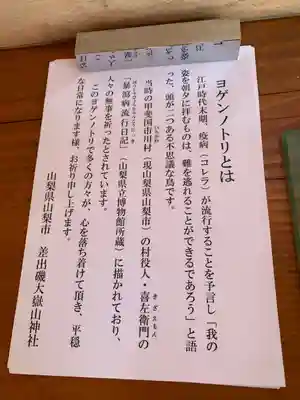 ヨゲンノトリとは
江戸時代末期、疫病（コレラ）が流行することを予言し「我の
姿を朝夕に拝むものは、難を逃れることができるであろう」と語
った、頭が二つある不思議な鳥です。
当時の甲斐国市川村（現山梨県山梨市）の村役人・喜左衛門の
「暴瀉病流行日記」（山梨県立博物館所蔵）に描かれており、
人々の無事を祈ったとされています。
このヨゲンノトリで多くの方々が、心を落ち着けて頂き、平穏
な日常になります様、お祈り申し上げます。
山梨県山梨市　差出磯大嶽山神社